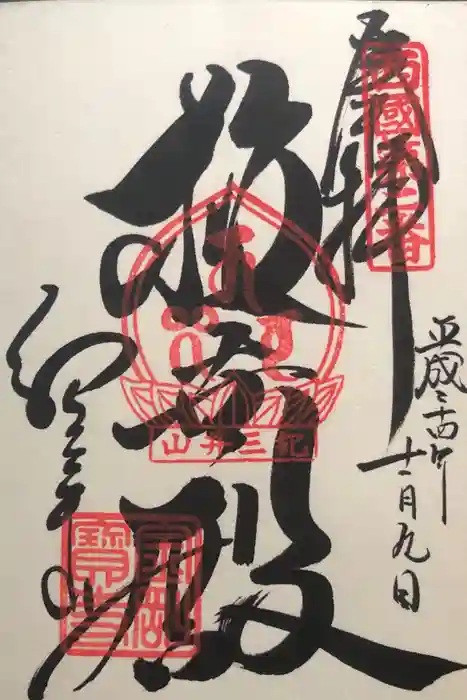 奉拝
西國第二番
平成二十四年
十一月九日
救世殿
紀三井山
紀三井寺
金剛
寶寺